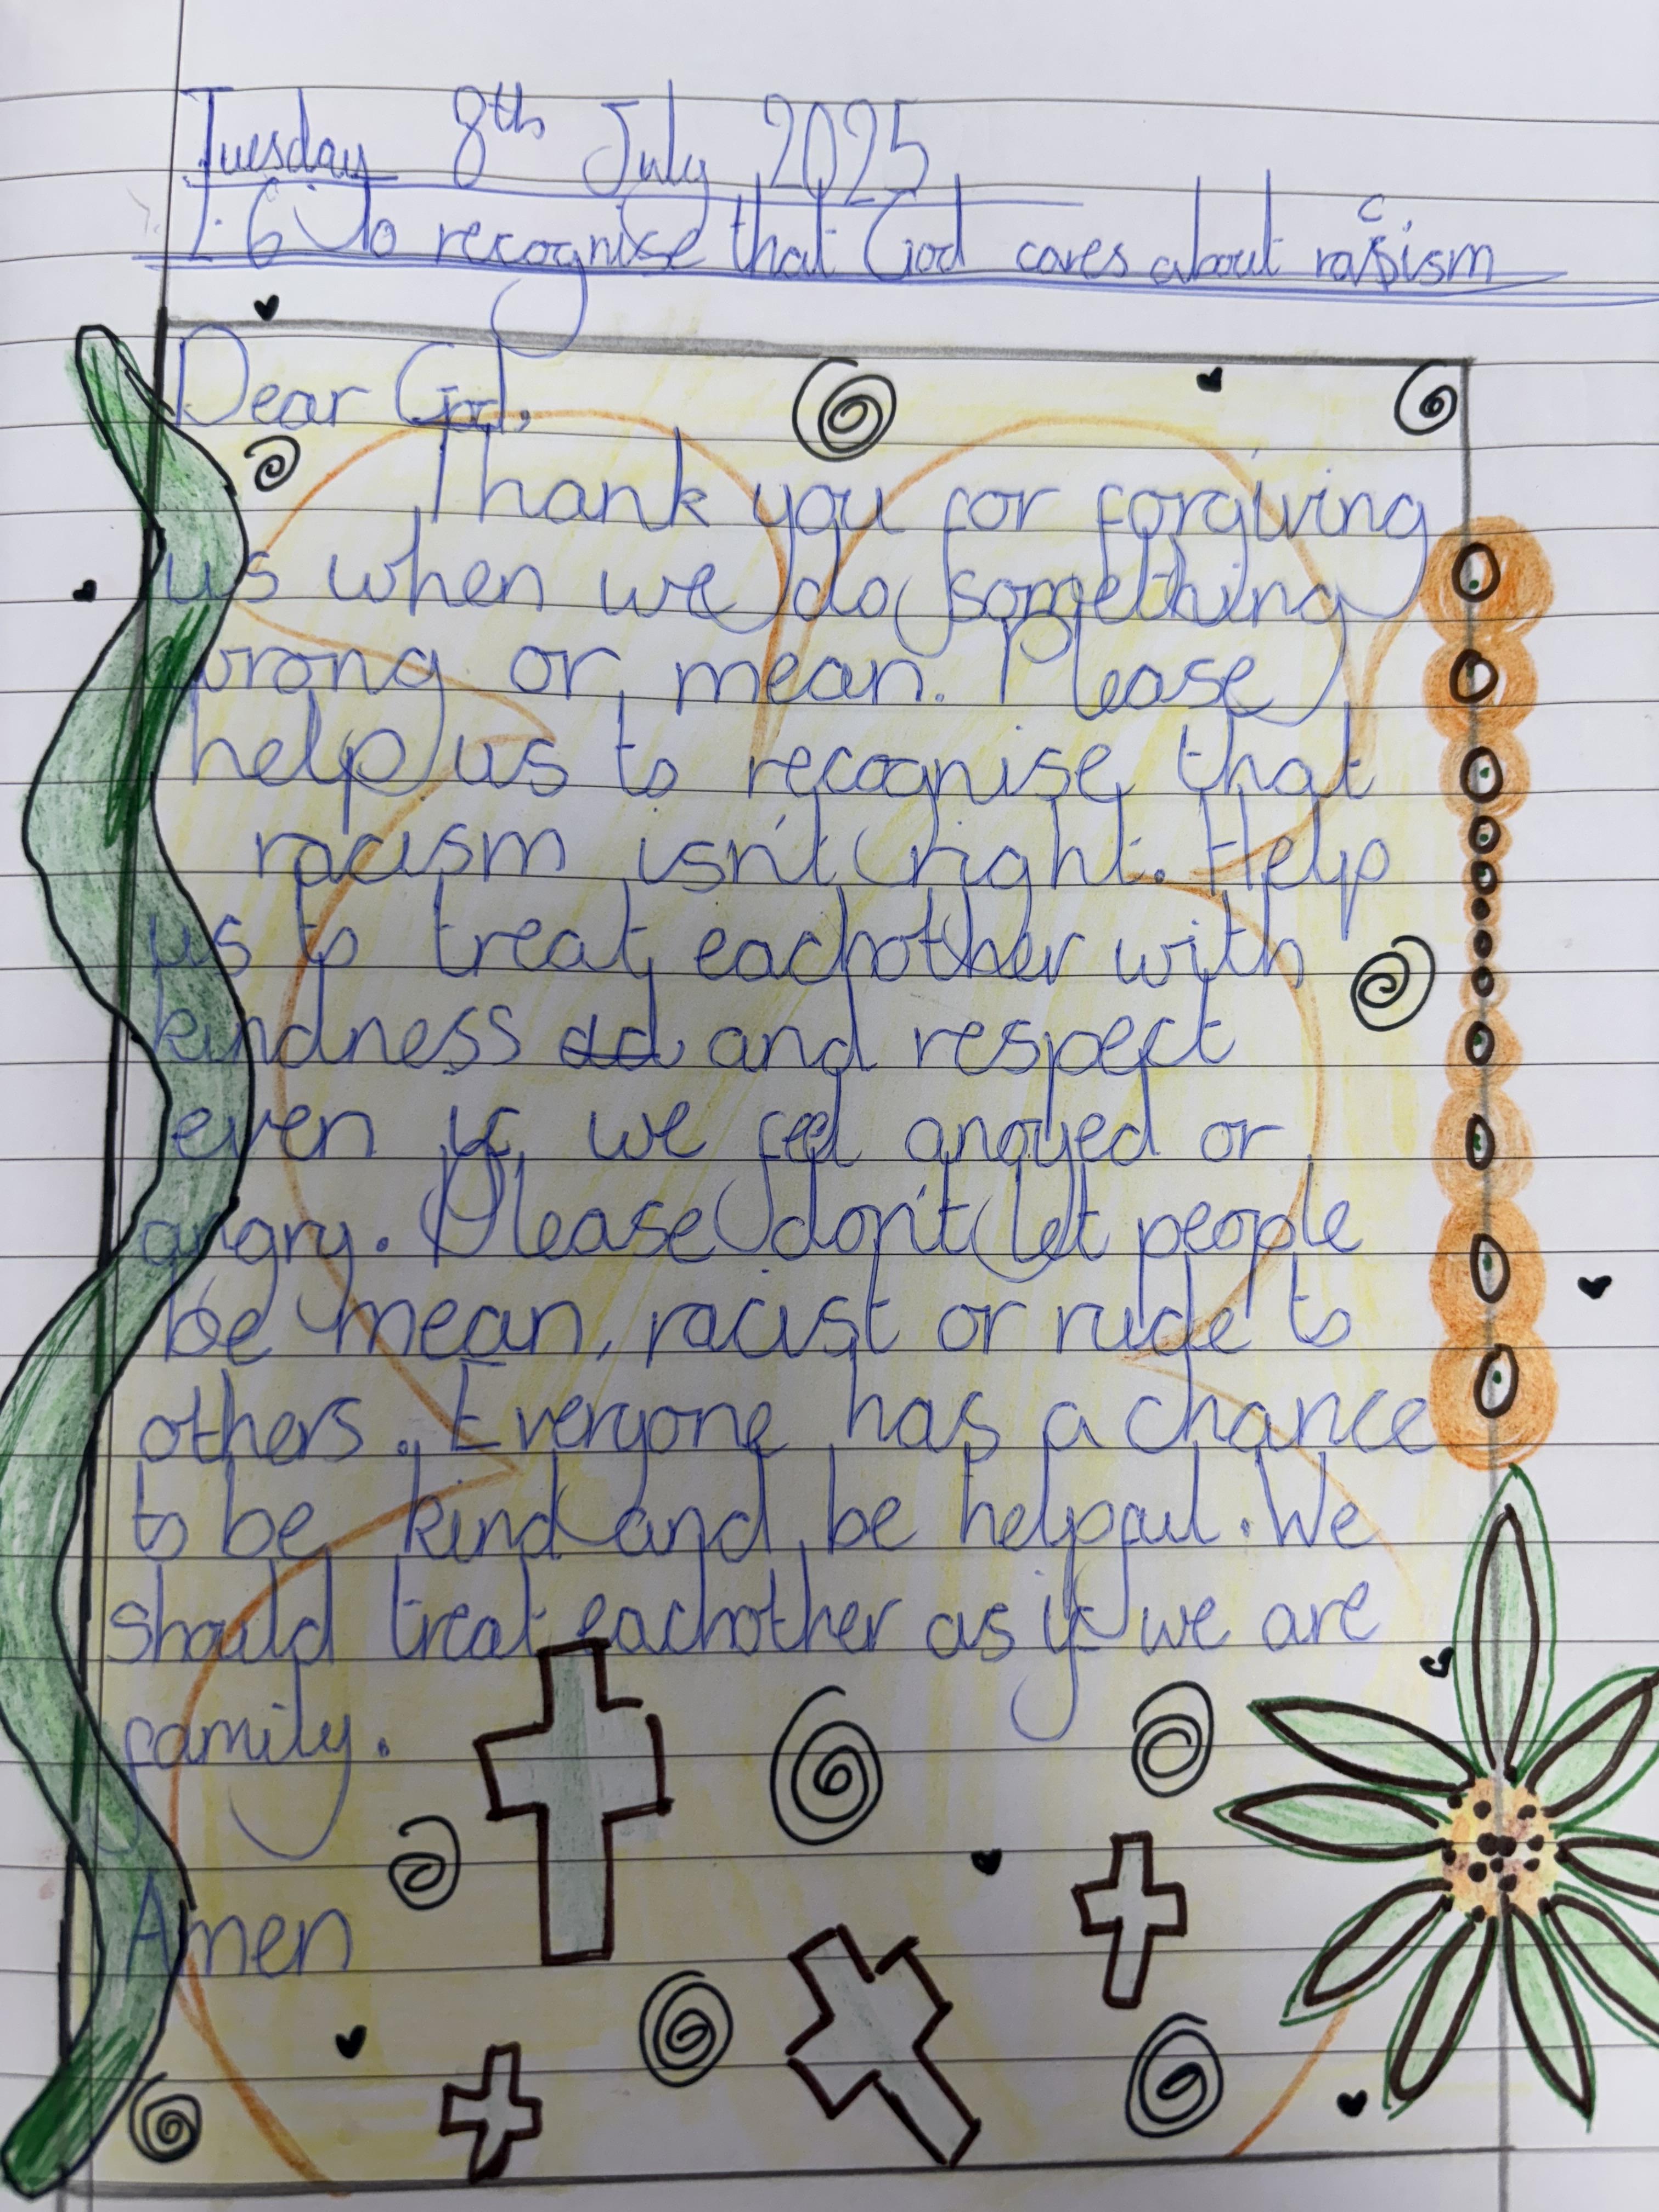 Tuesday 8th July 2025
L.6 To recognise that God cares about racism
Dear God,
Thank you for forgiving
us when we do something
wrong or mean. Please
help us to recognise that
racism isn't right. Help
us to treat eachother with
kindness ad and respect
even if we feel anoyed or
angry. Please don't let people
be mean, racist or rude to
others. Everyone has a chance
to be kind and be helpful. We
should treat eachother as if we are
family.
Amen